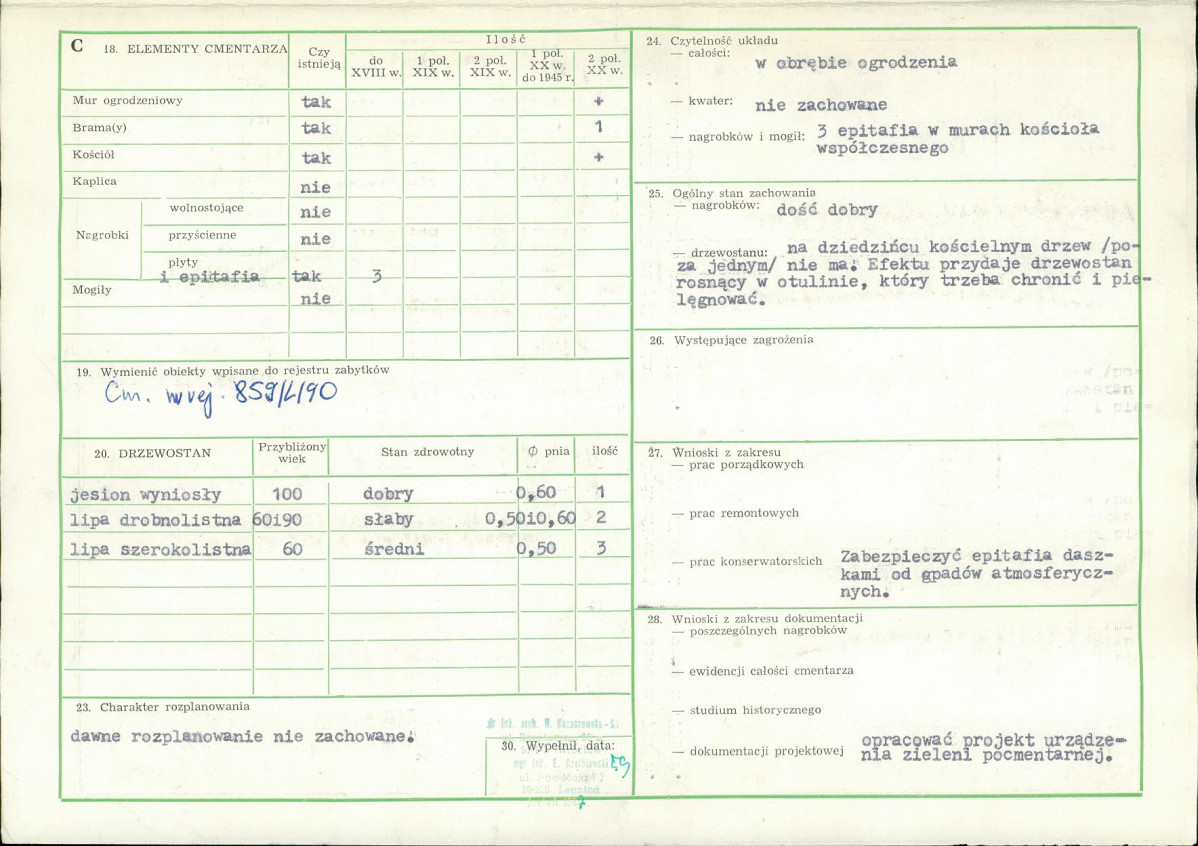 C 18. ELEMENTY CMENTARZA
Czy istnieją
Ilość
do XVIII w.
1 poł. XIX w.
2 poł. XIX w.
1 poł. XX w. do 1945 r.
2 poł. XX w.
Mur ogrodzeniowy tak +
Brama(y) tak 1
Kościół tak +
Kaplica nie
Nagrobki
wolnostojące nie
przyścienne nie
płyty
i epitafia tak 3
Mogiły nie
19. Wymienić obiekty wpisane do rejestru zabytków
Cm. w rej. 859/L/90
20. DRZEWOSTAN
Przybliżony wiek
Stan zdrowotny
Ø pnia
ilość
jesion wyniosły 100 dobry 0,60 1
lipa drobnolistna 60i90 słaby 0,50i0,60 2
lipa szerokolistna 60 średni 0,50 3
23. Charakter rozplanowania
dawne rozplanowanie nie zachowane.
30. Wypełnił, data:
24. Czytelność układu
— całości:
w obrębie ogrodzenia
— kwater: nie zachowane
— nagrobków i mogił: 3 epitafia w murach kościoła
współczesnego
25. Ogólny stan zachowania
— nagrobków: dość dobry
— drzewostanu: na dziedzińcu kościelnym drzew /po-
za jednym/ nie ma. Efektu przydaje drzewostan
rosnący w otulinie, który trzeba chronić i pie-
lęgnować.
26. Występujące zagrożenia
27. Wnioski z zakresu
— prac porządkowych
— prac remontowych
— prac konserwatorskich Zabezpieczyć epitafia dasz-
kami od gpadów atmosferycz-
nych.
28. Wnioski z zakresu dokumentacji
— poszczególnych nagrobków
— ewidencji całości cmentarza
— studium historycznego
— dokumentacji projektowej opracować projekt urządze-
nia zieleni pocmentarnej.